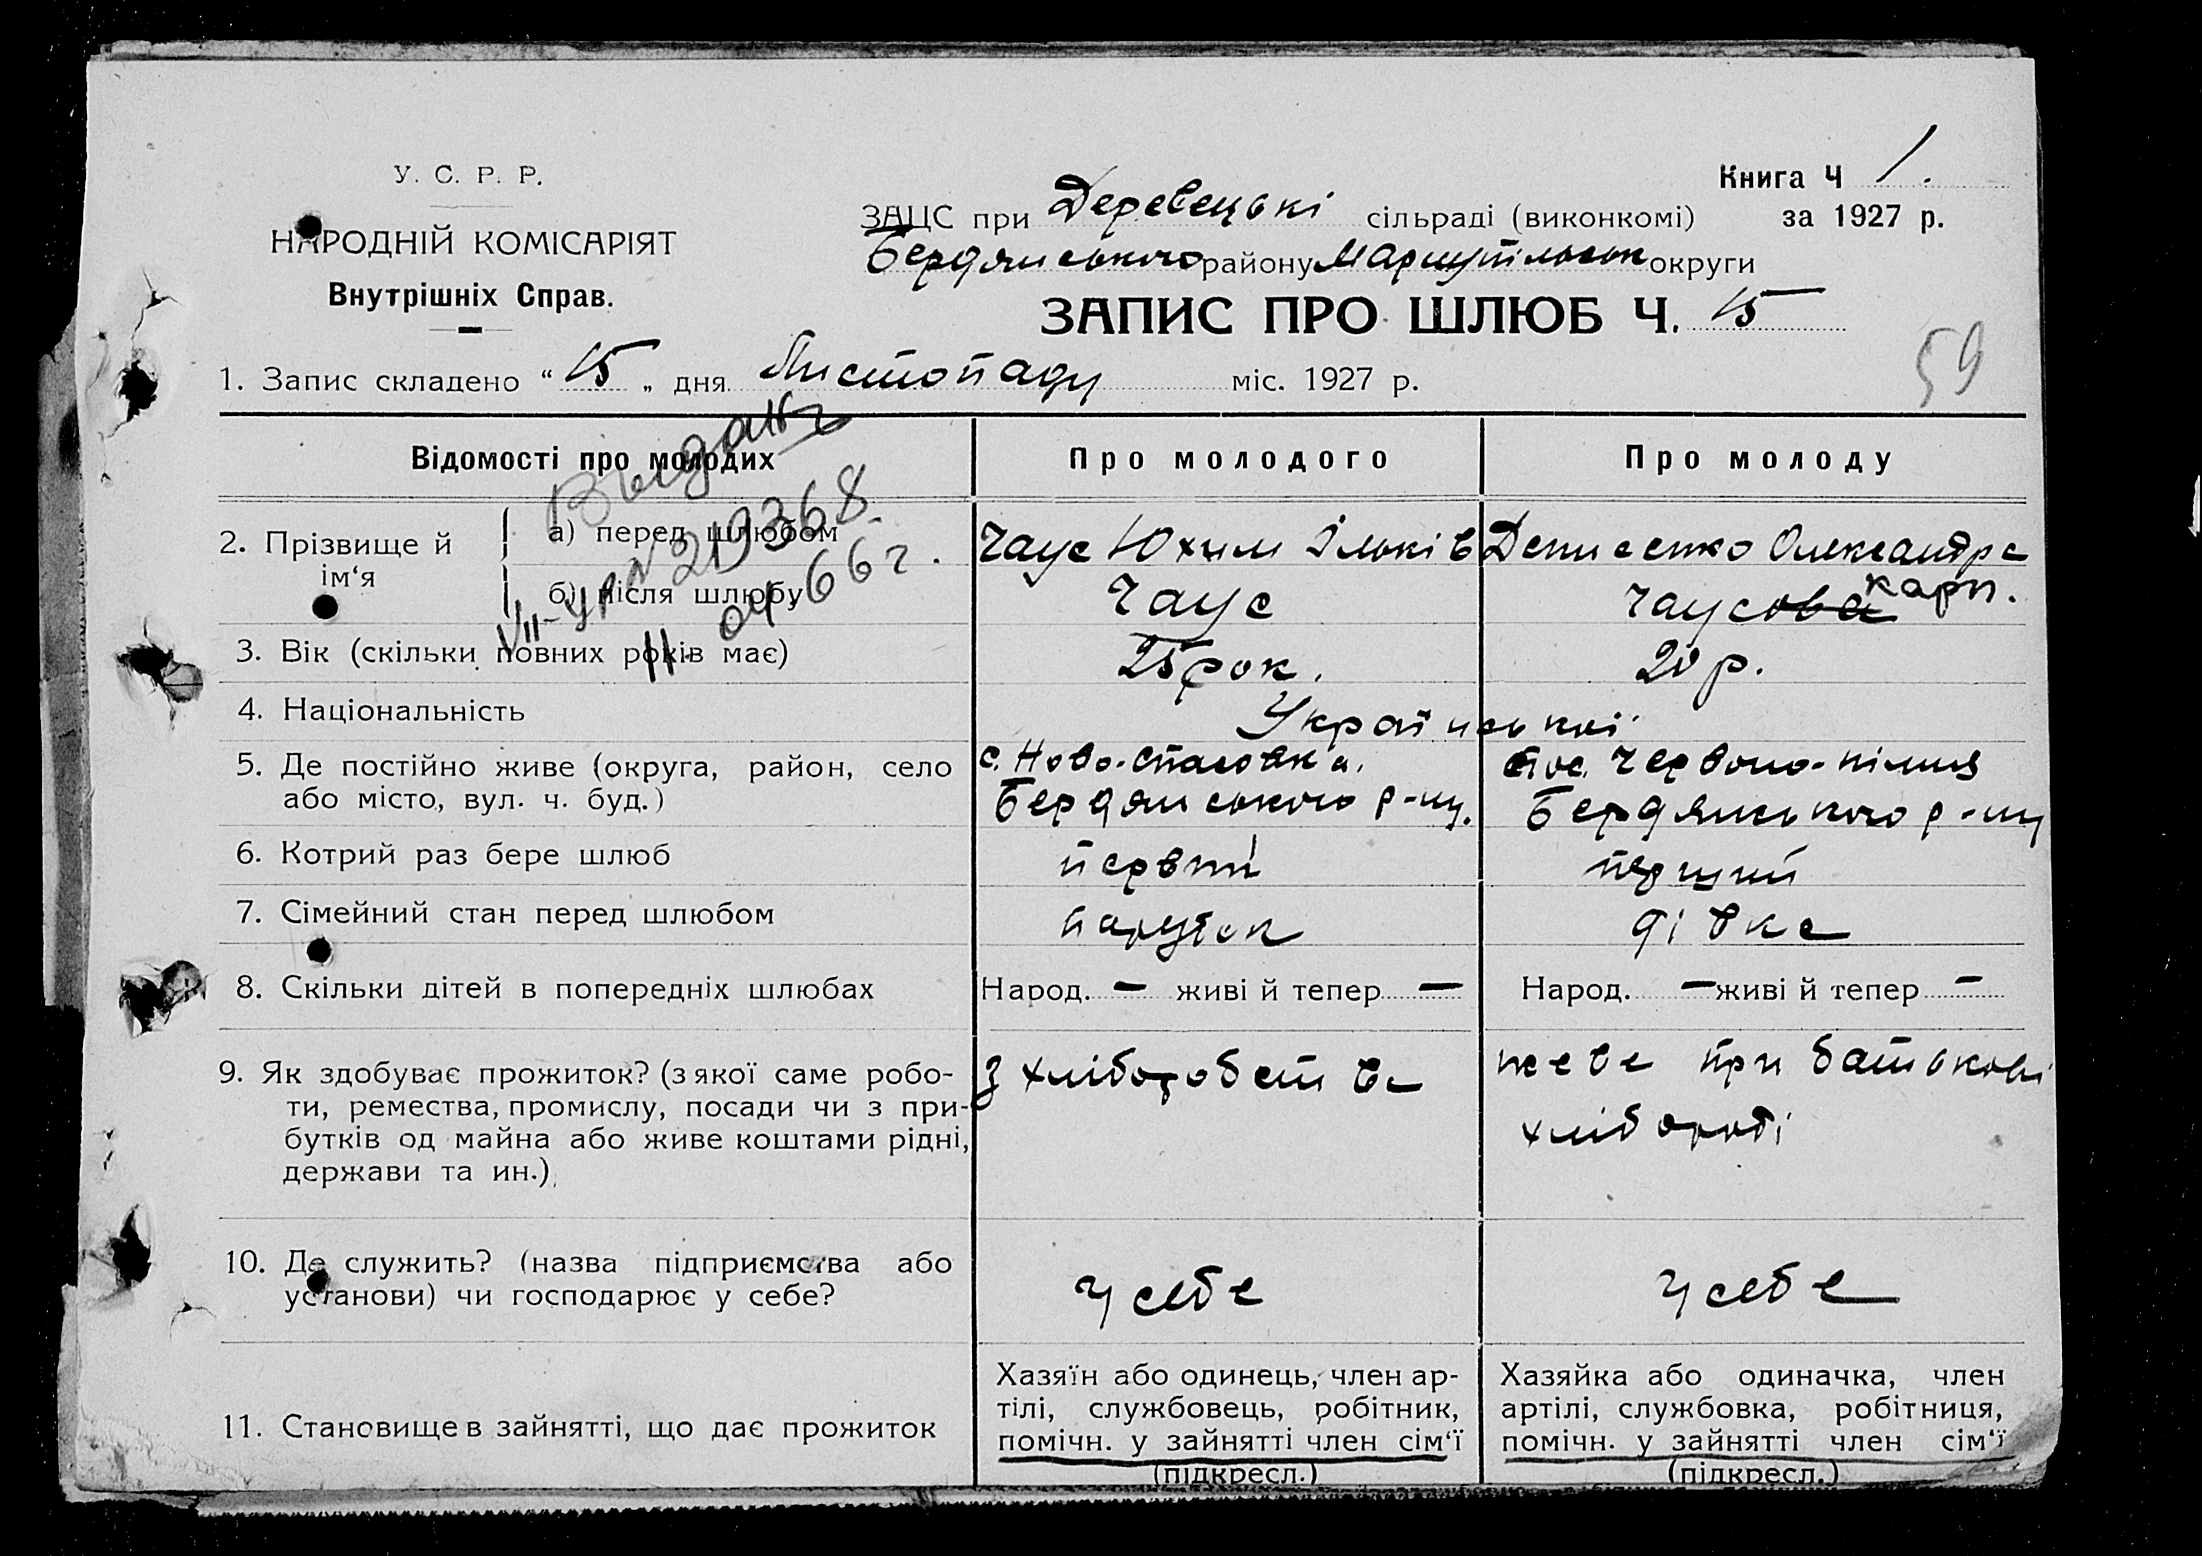 У. С. Р. Р.
НАРОДНІЙ КОМІСАРІЯТ
Внутрішніх Справ.
Книга Ч 1.
ЗАЦС при Деревецькі сільраді (виконкомі) за 1927 р.
Бердянського району Маріупільськ округи
ЗАПИС ПРО ШЛЮБ Ч. 15
59
1. Запис складено “ 15 „ дня Листопаду міс. 1927 р.
Відомості про молодих
Про молодого
Про молоду
2. Прізвище й ім‘я
а) перед шлюбом
Чаус Юхим Ільків
Денисенко Олександра
Карп.
б) після шлюбу
Чаус
Чаусова
219368
11. 04. 66 г.
3. Вік (скільки повних років має)
25 рок.
20 р.
4. Національність
Української
5. Де постійно живе (округа, район, село
або місто, вул. ч. буд.)
с. Ново-Спасовка,
Бердянського р-ну.
пос. Червоно-пілля
Бердянського р-ну
6. Котрий раз бере шлюб
первий
перший
7. Сімейний стан перед шлюбом
парубок
дівка
8. Скільки дітей в попередніх шлюбах
Народ. — живі й тепер —
Народ. — живі й тепер —
9. Як здобуває прожиток? (з якої саме робо-
ти, ремества, промислу, посади чи з при-
бутків од майна або живе коштами рідні,
держави та ин.)
З хліборобства
живе при батькові
хліборобі
10. Де служить? (назва підприємства або
установи) чи господарює у себе?
у себе
у себе
11. Становище в зайнятті, що дає прожиток
Хазяїн або одинець, член ар-
тілі, службовець, робітник,
помічн. у зайнятті член сім‘ї
(підкресл.)
Хазяйка або одиначка, член
артілі, службовка, робітниця,
помічн. у зайнятті член сім‘ї
(підкресл.)